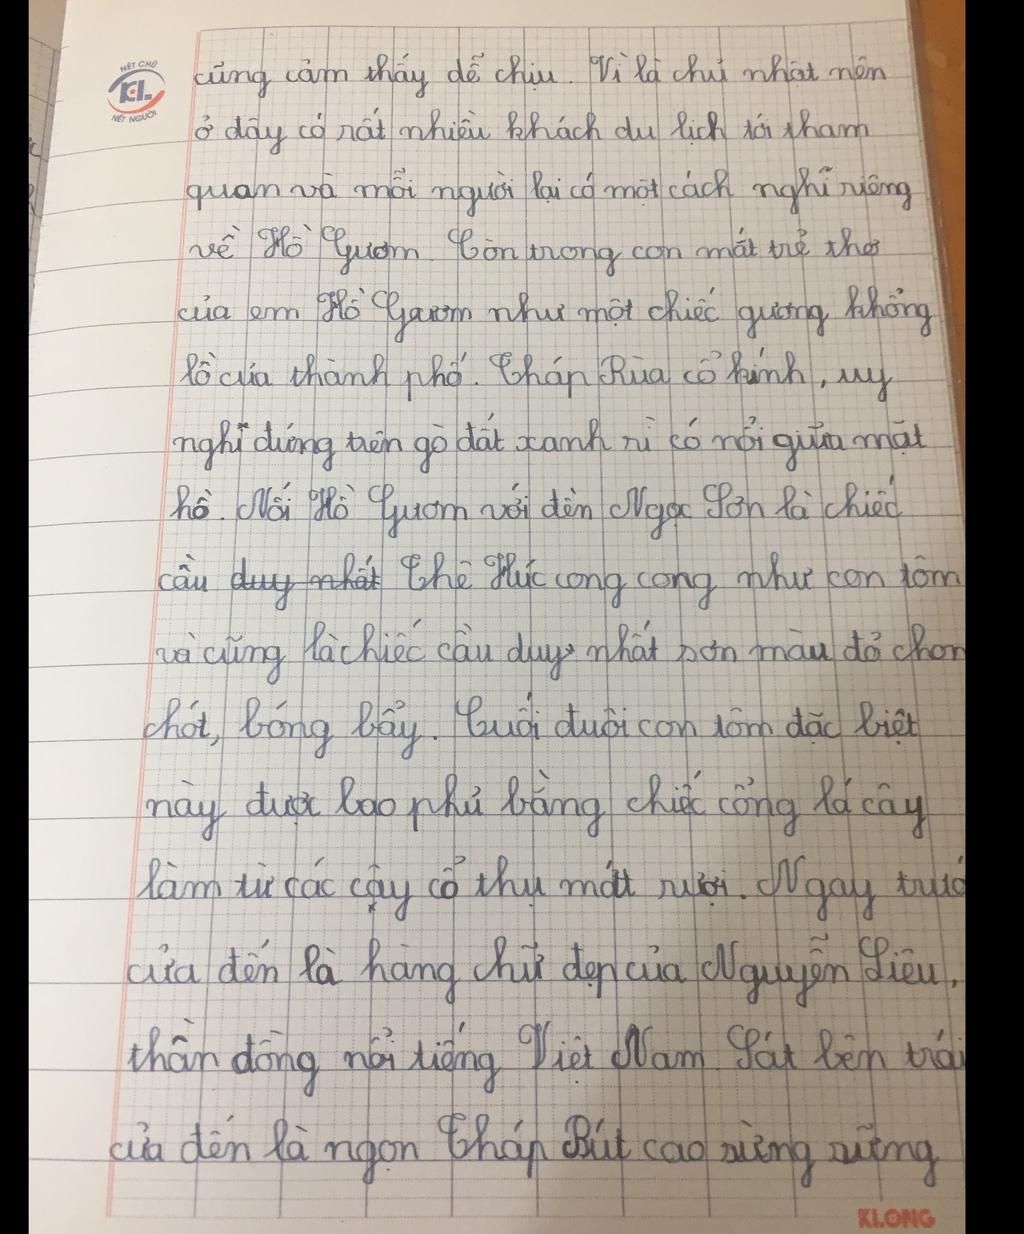 NÉT CHỮ
KL
NẾT NGƯỜI
cũng cảm thấy dễ chịu. Vì là chủ nhật nên
ở đây có rất nhiều khách du lịch tới tham
quan và mỗi người lại có một cách nghĩ riêng
về Hồ Gươm. Còn trong con mắt trẻ thơ
của em Hồ Gươm như một chiếc gương khổng
lồ của thành phố. Tháp Rùa cổ kính, uy
nghĩ đứng trên gò đất xanh rì cỏ nổi giữa mặt
hồ. Nối Hồ Gươm với đền Ngọc Sơn là chiếc
cầu duy nhất Thê Húc cong cong như con tôm
và cũng là chiếc cầu duy nhất sơn màu đỏ chon
chót, bóng bẩy. Cuối đuôi con tôm đặc biệt
này được bao phủ bằng chiếc cổng lá cây
làm từ các cây cổ thụ mát rượi. Ngay trướ
cửa đền là hàng chữ đẹp của Nguyễn Siêu,
thần đồng nổi tiếng Việt Nam. Sát bên trái
cửa đền là ngọn Tháp Bút cao sừng sững
KLONG